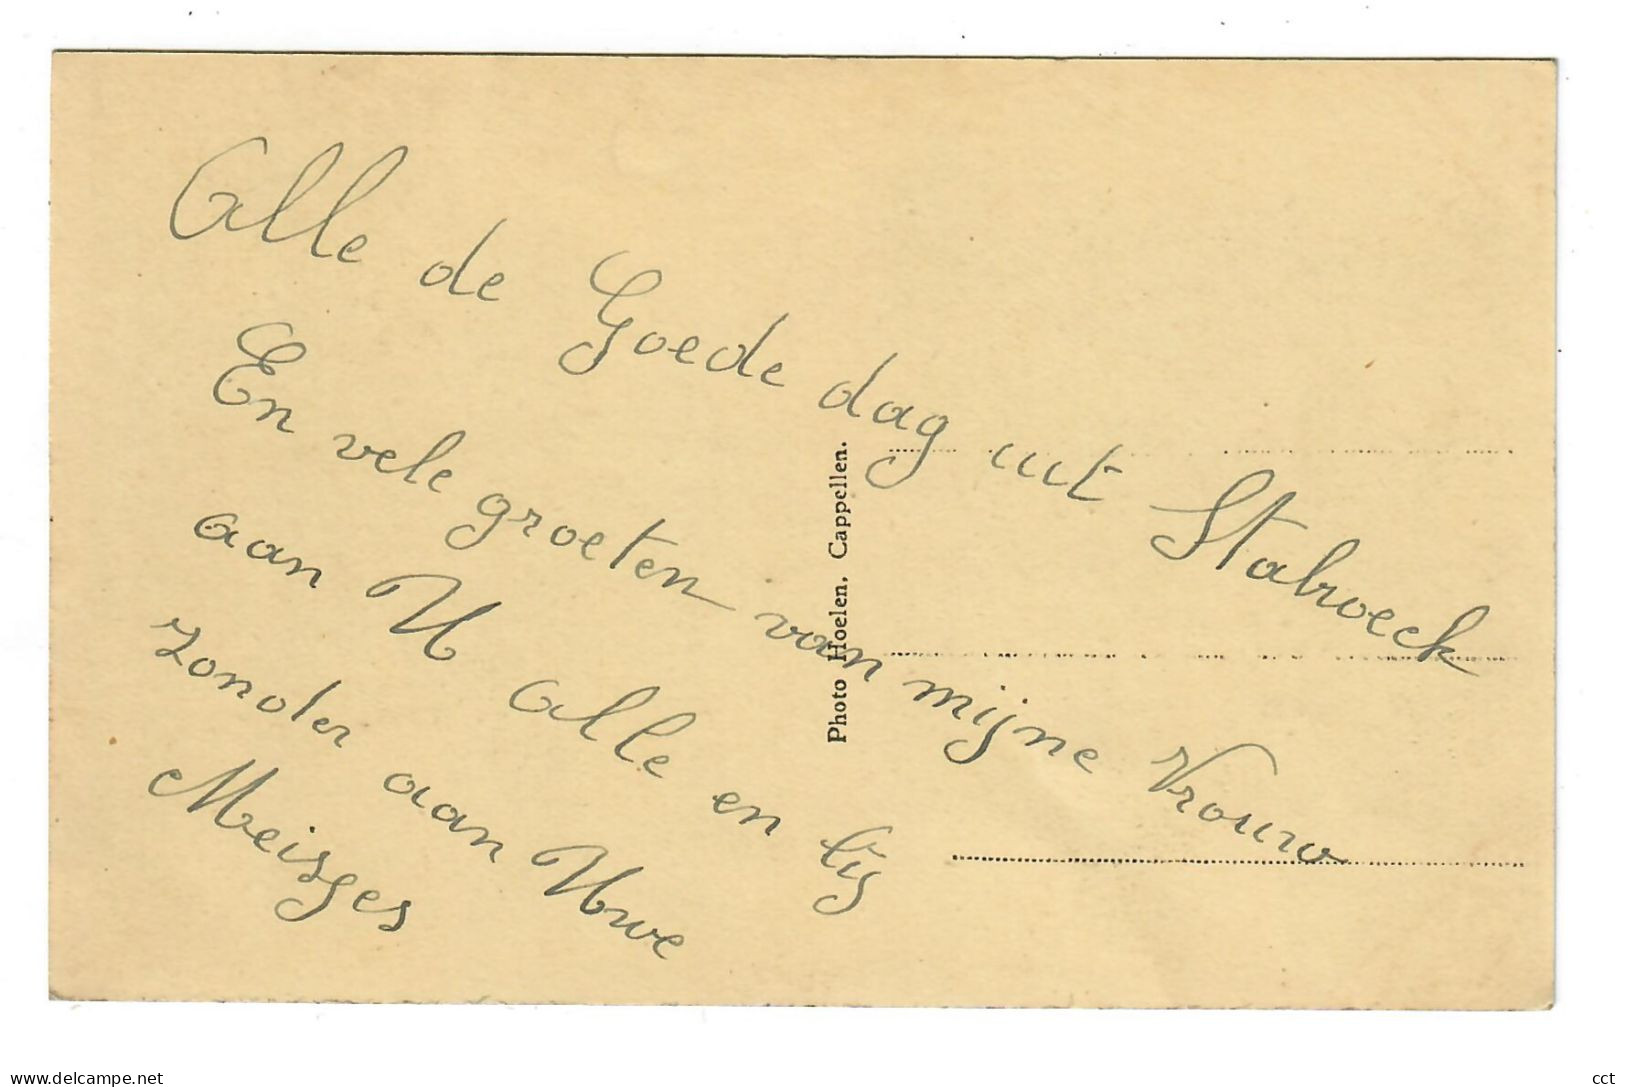 Alle de Goede dag uit Stabroeck
En vele groeten van mijne Vrouw
aan U Alle en bij
zonder aan Uwe
Meisges
Photo Hoelen, Cappellen.
www.delcampe.net
cct